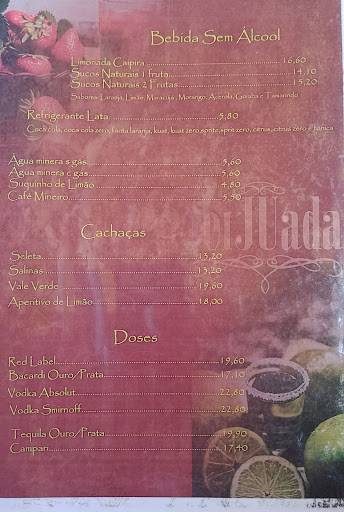 Bebida Sem Álcool
Limonada Caipira 16,60
Sucos Naturais 1 fruta 14,10
Sucos Naturais 2 Frutas 15,20
Sabores: Laranja, Limão, Maracujá, Morango, Acerola, Goiaba e Tamarindo
Refrigerante Lata 5,80
Coca cola, coca cola zero, fanta laranja, kuat, kuat zero, sprite, sprite zero, citrus, citrus zero e tônica
Agua minera s gás 5,60
Agua minera c gás 5,60
Suquinho de Limão 4,80
Café Mineiro 5,50
JUada
Cachaças
Seleta 13,20
Salinas 13,20
Vale Verde 19,60
Aperitivo de Limão 18,00
Doses
Red Label 19,60
Bacardi Ouro/Prata 17,10
Vodka Absolut 22,80
Vodka Smirnoff 22,80
Tequila Ouro/Prata 19,90
Campari 17,40